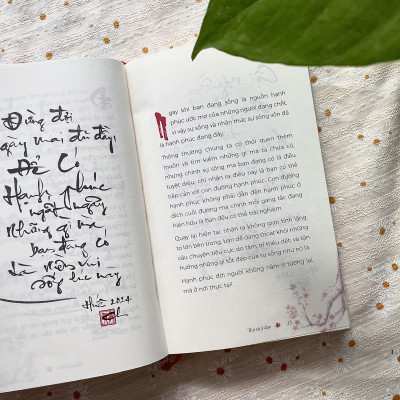 Đừng đợi
ngày mai đủ đầy
Để Có
Hạnh phúc
ngất ngây
Những gì mà
bạn đang có
Là niềm vui
sống lúc này
2024
Ngay khi bạn đang sống là nguồn hạnh
phúc ước mơ của những người đang chết,
vì vậy sự sống và nhận thức sự sống vốn đã
là hạnh phúc đang đầy.
Thông thường chúng ta có thói quen thèm
muốn và tìm kiếm những gì mà ta chưa có,
nhưng chính sự sống mà bạn đang có là điều
tuyệt diệu, ghi nhận ra điều này là bạn có thể
tiếp cận với con đường hạnh phúc. Con đường
hạnh phúc không phải dẫn đến hạnh phúc ở
đích cuối đường mà chính mỗi gang tấc đang
hiện hữu là bạn đều có thể trải nghiệm.
Quay lại hiện tại, nhận ra không gian tĩnh lặng
to lớn bên trong, bạn dễ dàng thoát khỏi những
câu chuyện tiêu cực do tâm trí thêu dệt và tận
hưởng những gì tốt đẹp của sự sống như nó là.
Hạnh phúc đời người không nằm ở tương lai,
mà ở nơi thực tại!